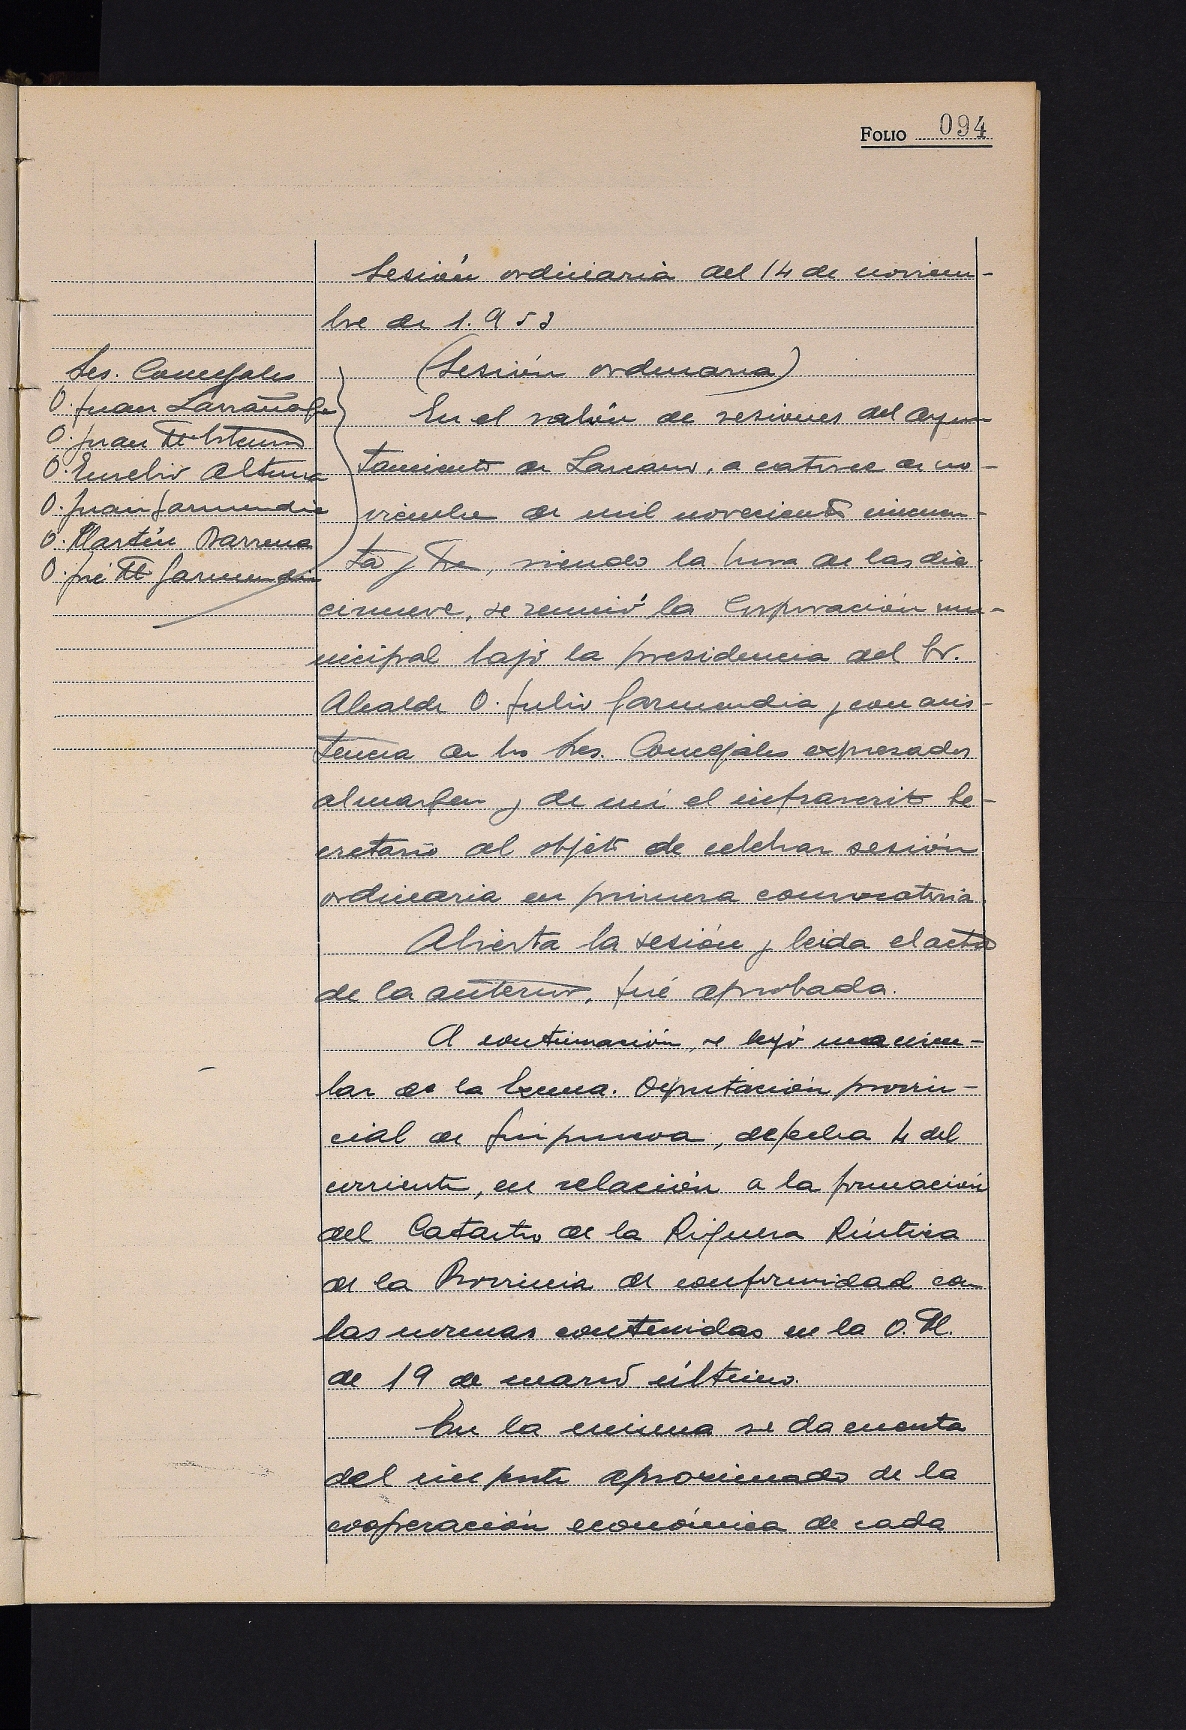 FOLIO 094
Sesión ordinaria del 14 de noviem-
bre de 1.953
Sres. Concejales
D. Juan Larrañaga
D. Juan M.
D. Eusebio Altuna
D. Juan Garmendia
D. Martín Barrena
D. José M. Garmendia
(Sesión ordinaria)
En el salón de sesiones del ayun
tamiento de Lazcano, a catorce de no-
viembre de mil novecientos cincuen-
ta y tres, siendo la hora de las die
cinueve, se reunió la Corporación mu-
nicipal bajo la presidencia del Sr.
Alcalde D. Julio Garmendia y con asis-
tencia de los Sres. Concejales expresados
al margen y de mi el infrascrito Se-
cretario al objeto de celebrar sesión
ordinaria en primera convocatoria.
Abierta la sesión y leida el acta
de la anterior, fué aprobada.
A continuación, se leyó una circu-
lar de la Excma. Diputación provin-
cial de Guipuzcoa, de fecha 4 del
corriente, en relación a la formación
del Catastro de la Riqueza Rústica
de la Provincia de conformidad con
las normas contenidas en la O. M.
de 19 de marzo último.
En la misma se da cuenta
del importe aproximado de la
cooperación económica de cada